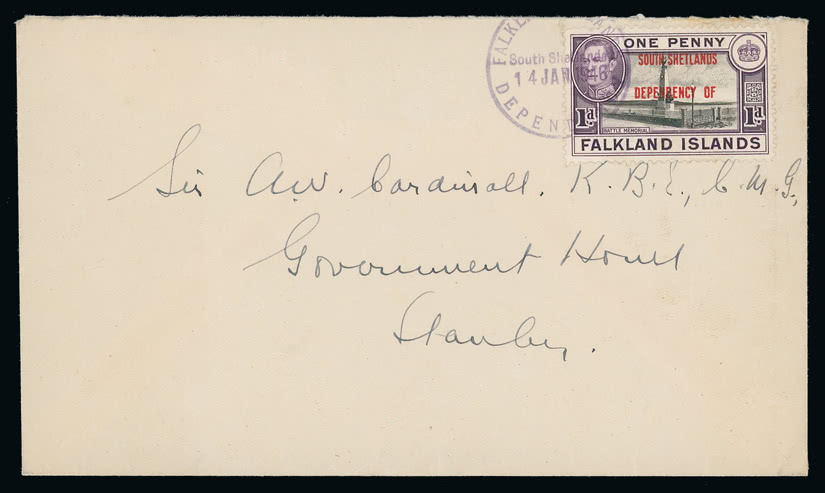 FALKLAND ISLAND
South Shetlands
14 JAN 1946
DEPEN
ONE PENNY
SOUTH SHETLANDS
DEPENDENCY OF
1d 1d
BATTLE MEMORIAL
FALKLAND ISLANDS
Sir A.W. Cardinall. K.B.E., C.M.G.,
Government House
Stanley.